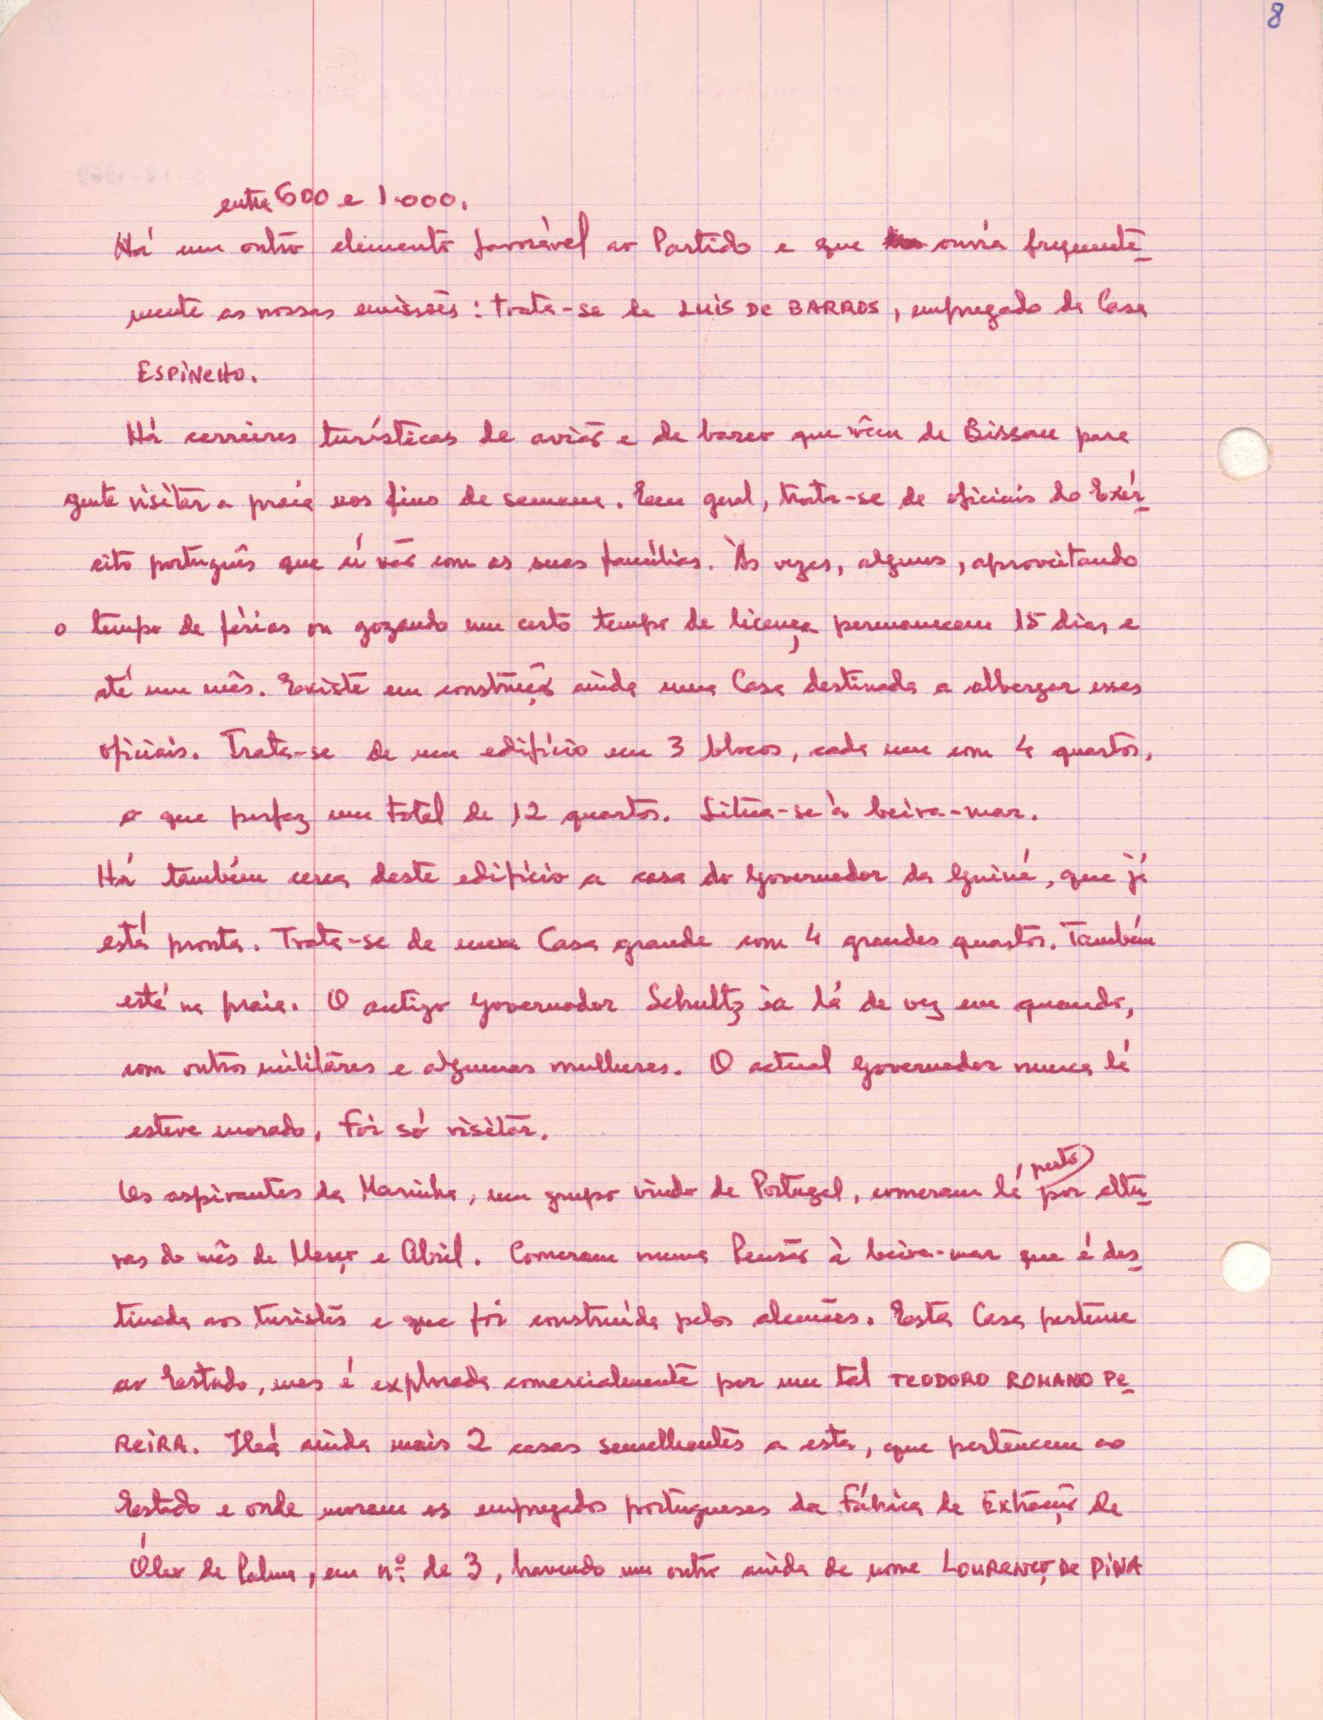 8
entre 600 e 1.000.
Há um outro elemento favorável ao Partido e que ouvia frequente-
mente as nossas emissões: trata-se de LUÍS DE BARROS, empregado da Casa
ESPINCHO.
Há carreiras turísticas de avião e de barco que vêm de Bissau para
gente visitar a praia nos fins de semana. Em geral, trata-se de oficiais do Exér-
cito português que aí vão com as suas famílias. Às vezes, alguns, aproveitando
o tempo de férias ou gozando um certo tempo de licença, permanecem 15 dias e
até um mês. Existe em construção ainda uma Casa destinada a albergar esses
oficiais. Trata-se de um edifício em 3 blocos, cada um com 4 quartos,
o que perfaz um total de 12 quartos. Situa-se à beira-mar.
Há também cerca deste edifício a casa do Governador da Guiné, que já
está pronta. Trata-se de uma Casa grande com 4 grandes quartos. Também
está na praia. O antigo Governador Schultz ia lá de vez em quando,
com outros militares e algumas mulheres. O actual Governador nunca lá
esteve morado, foi só visitar.
Os aspirantes da Marinha, um grupo vindo de Portugal, comeram lá perto por altu-
ras do mês de Março e Abril. Comeram numa Pensão à beira-mar que é des-
tinada aos turistas e que foi construída pelos alemães. Esta Casa pertence
ao Estado, mas é explorada comercialmente por um tal TEODORO ROMANO PE-
REIRA. Há ainda mais 2 casas semelhantes a esta, que pertencem ao
Estado e onde moram os empregados portugueses da Fábrica de Extração de
Óleo de Palma, em nº. de 3, havendo um outro ainda de nome LOURENÇO DE PINA